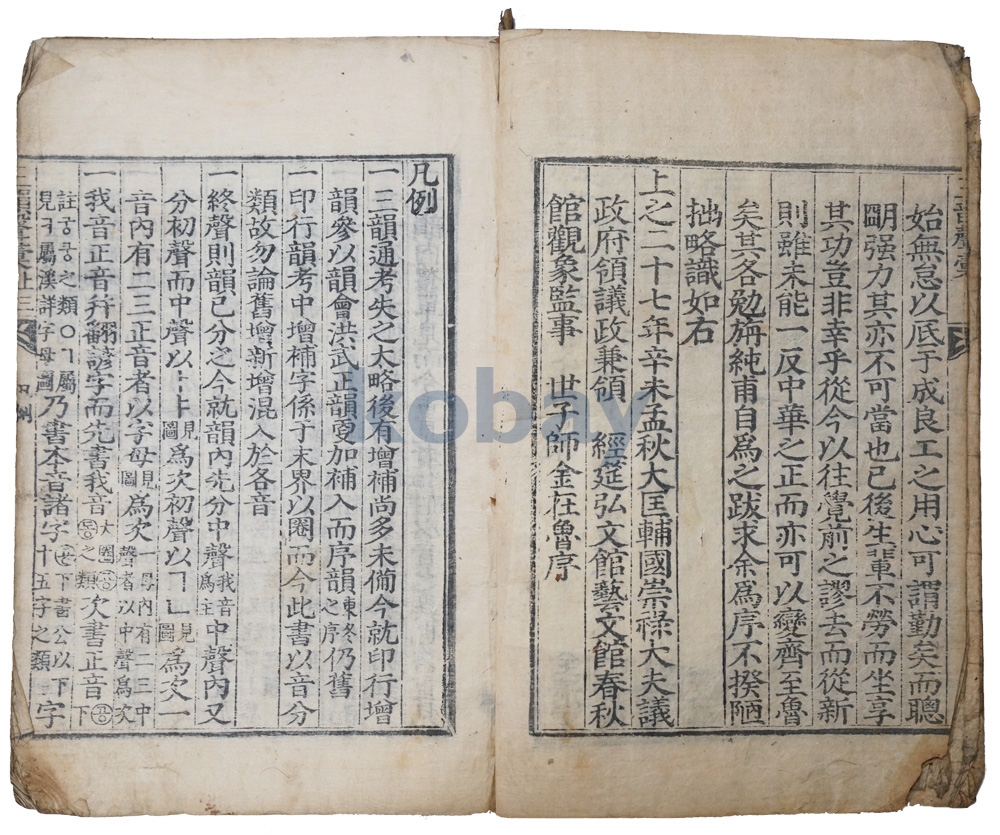 始無怠以底于成良工之用心可謂勤矣而聰
明强力其亦不可當也已後生輩不勞而坐享
其功豈非幸乎從今以往覺前之謬去而從新
則雖未能一反中華之正而亦可以變齊至魯
矣其各勉旃純甫自爲之跋求余爲序不揆陋
拙略識如右
上之二十七年辛未孟秋大匡輔國崇祿大夫議
政府領議政兼領 經筵弘文館藝文館春秋
館觀象監事 世子師金在魯序
凡例
一三韻通考失之太略後有增補尚多未備今就印行增
韻參以韻會洪武正韻更加補入而序韻東冬之序仍舊
一印行韻考中增補字係于末界以圈而今此書以音分
類故勿論舊增新增混入於各音
一終聲則韻已分之今就韻內先分中聲我音爲主中聲內又
分初聲而中聲以ㅏㅑ見圖爲次初聲以ㄱㄴ見圖爲次一
音內有二三正音者以字母見圖爲次一畧內有二三中聲者以中聲爲次
一我音正音幷翻諺字而先書我音大圈공동之類次書正音下
註궁궁之類ㅇㄱ屬見ㅋ屬溪詳字母圖乃書本音諸字공下書公以下十五字之類字
kobay